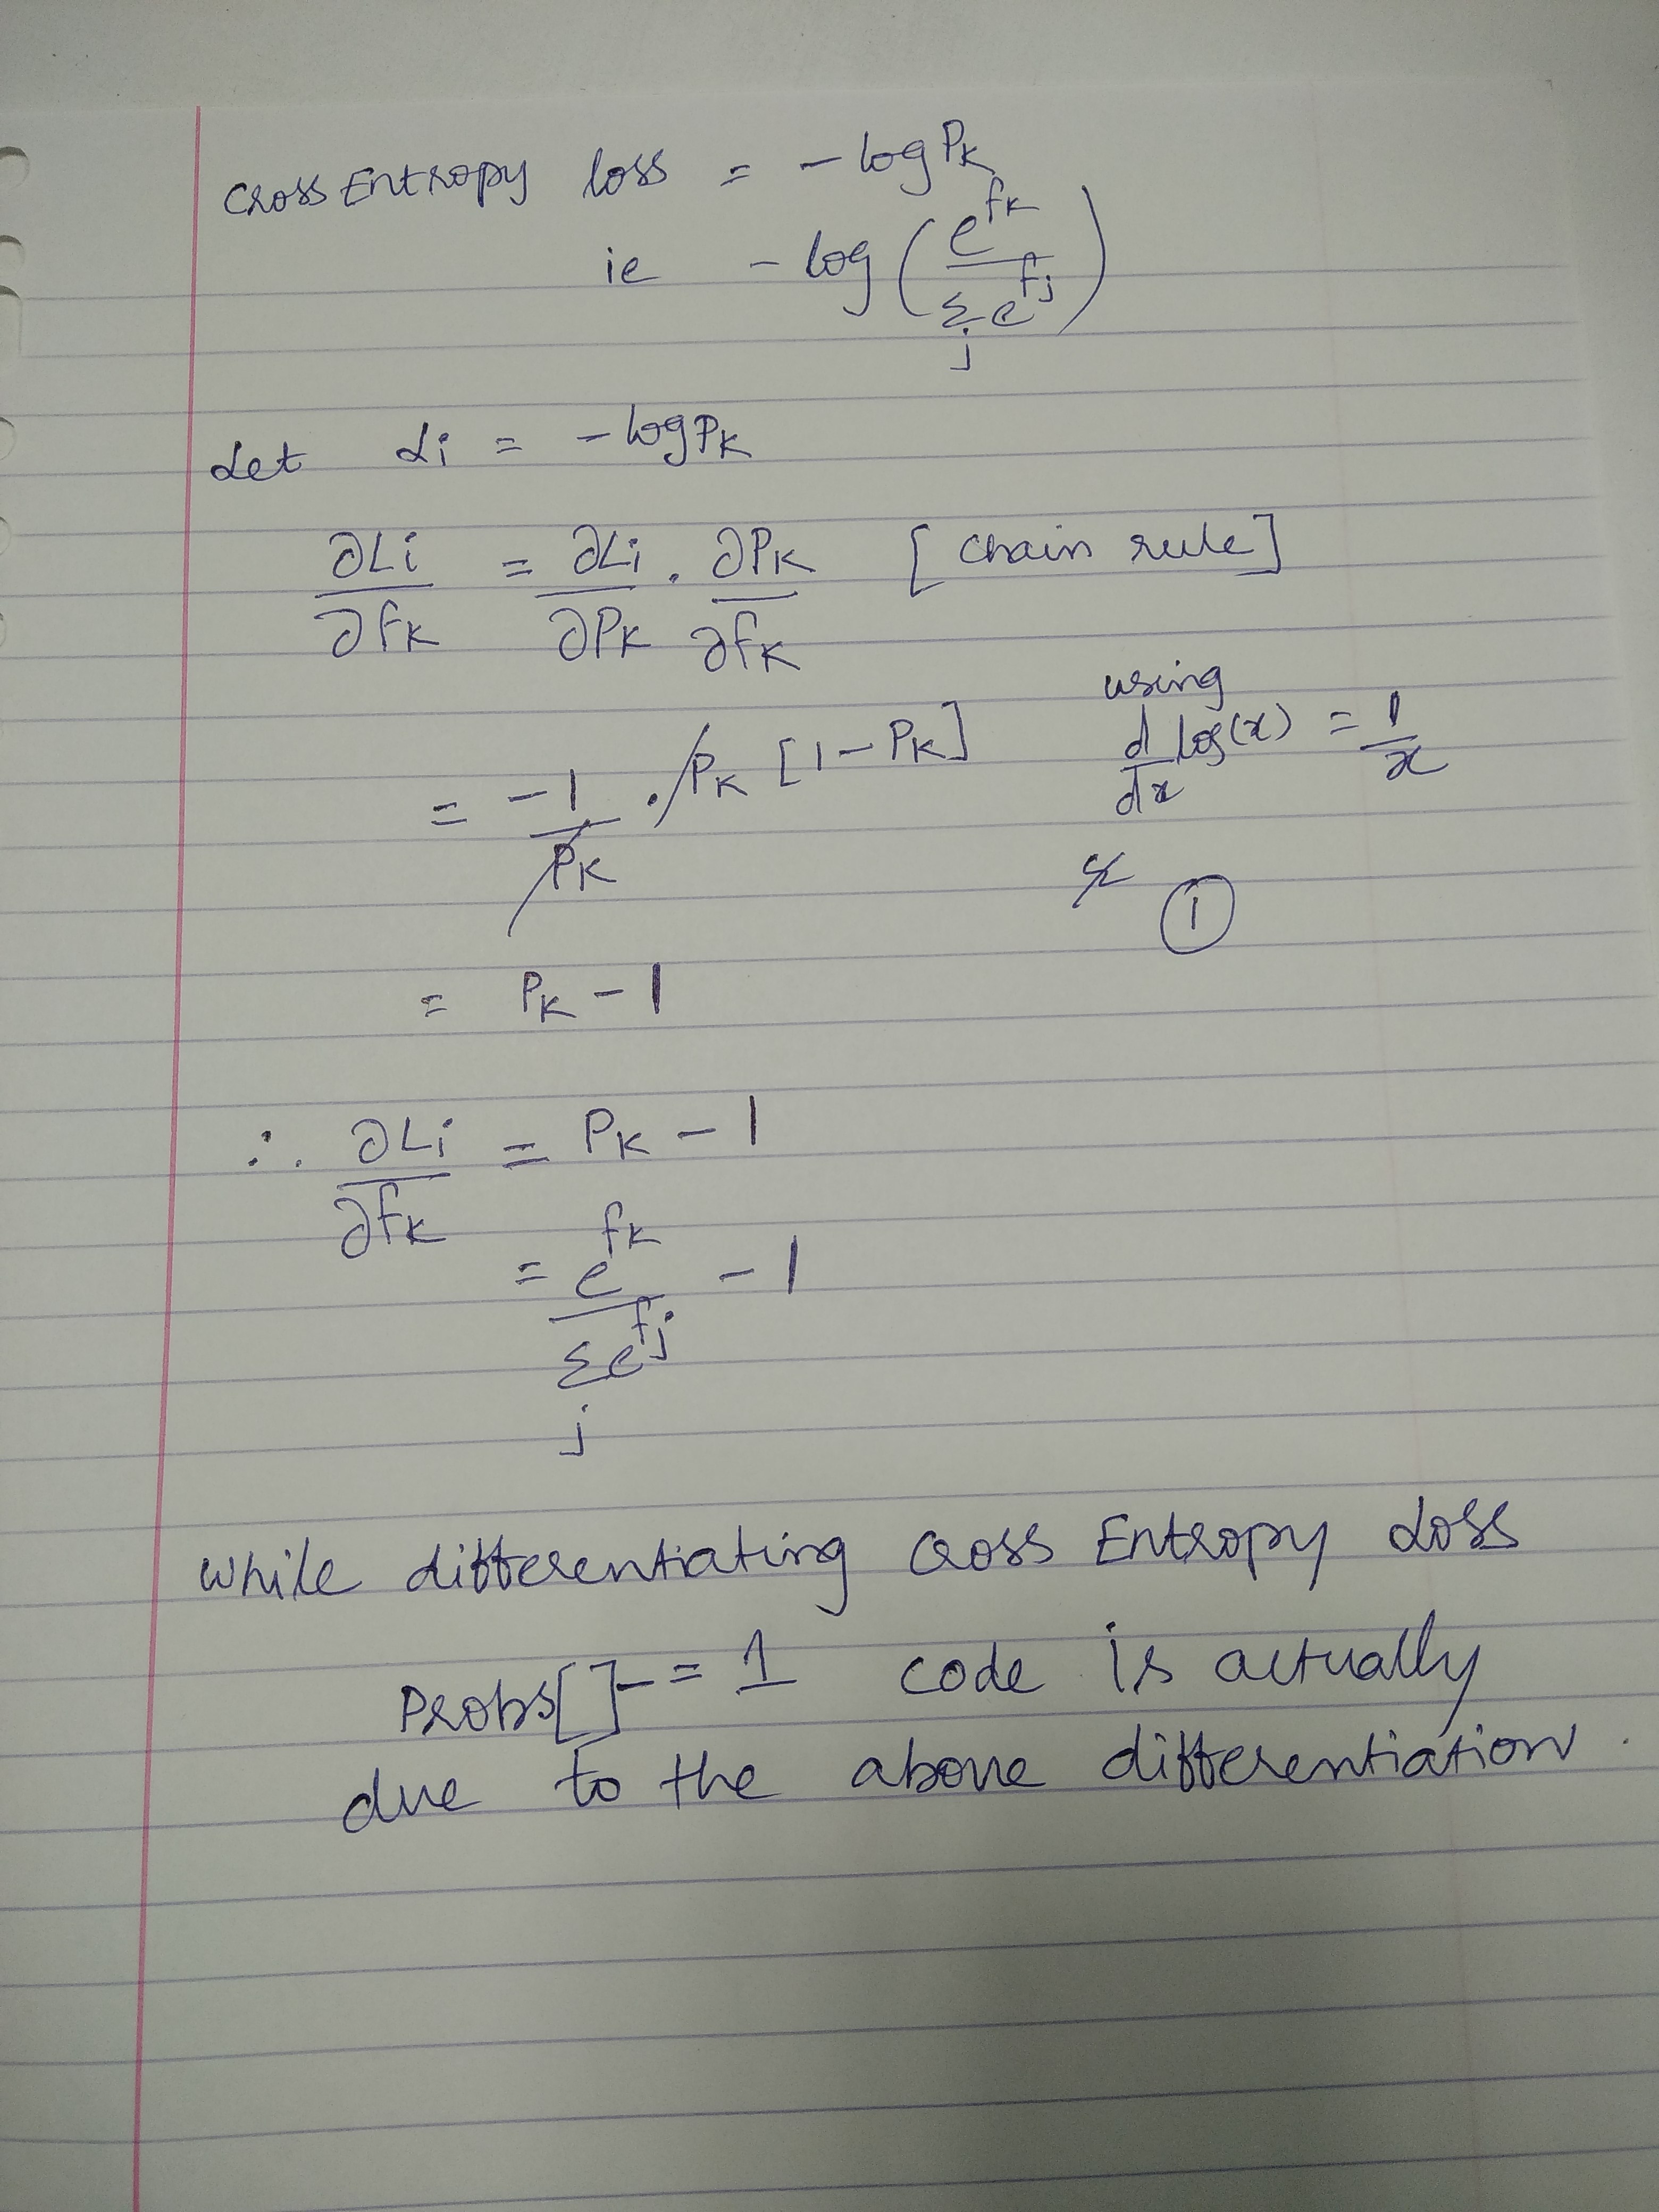 Cross Entropy loss = - log Pk
ie - log ( e^fk / Σj e^fj )
Let Li = - log Pk
∂Li/∂fk = ∂Li/∂Pk . ∂Pk/∂fk [chain rule]
= -1/Pk . Pk [1 - Pk] using d/dx log(x) = 1/x
& ①
= Pk - 1
∴ ∂Li/∂fk = Pk - 1
= e^fk / Σj e^fj - 1
While differentiating Cross Entropy Loss
Probs[] -= 1 code is actually
due to the above differentiation.